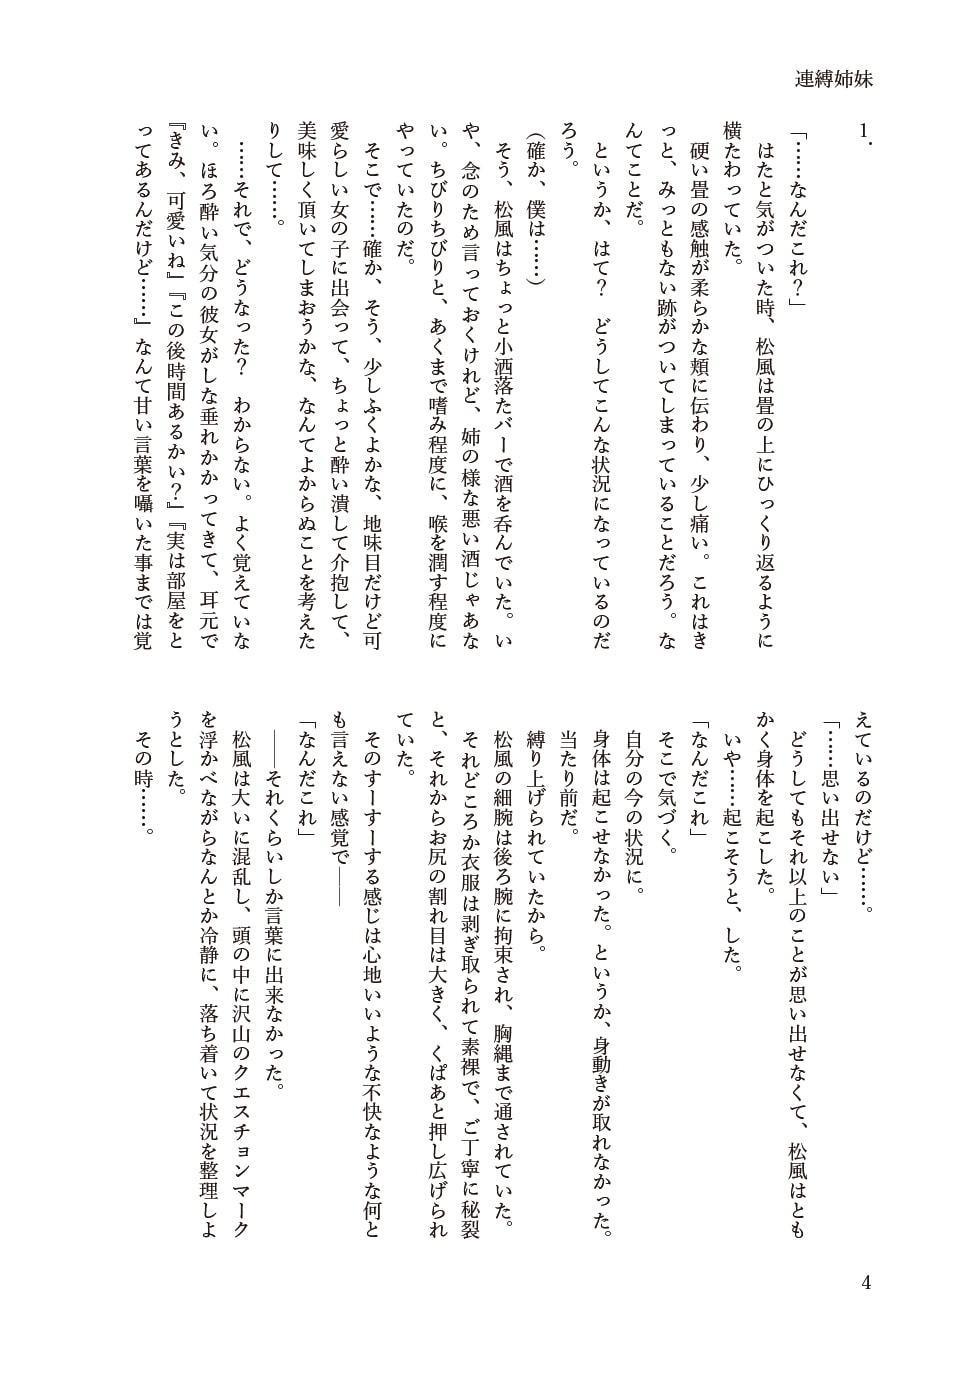 連縛姉妹
1.
「……なんだこれ？」
　はたと気がついた時、松風は畳の上にひっくり返るように
横たわっていた。
　硬い畳の感触が柔らかな頬に伝わり、少し痛い。これはき
っと、みっともない跡がついてしまっていることだろう。な
んてことだ。
　というか、はて？　どうしてこんな状況になっているのだ
ろう。
（確か、僕は……）
　そう、松風はちょっと小洒落たバーで酒を呑んでいた。い
や、念のため言っておくけれど、姉の様な悪い酒じゃあな
い。ちびりちびりと、あくまで嗜み程度に、喉を潤す程度に
やっていたのだ。
　そこで……確か、そう、少しふくよかな、地味目だけど可
愛らしい女の子に出会って、ちょっと酔い潰して介抱して、
美味しく頂いてしまおうかな、なんてよからぬことを考えた
りして……。
　……それで、どうなった？　わからない。よく覚えていな
い。ほろ酔い気分の彼女がしな垂れかかってきて、耳元で
『きみ、可愛いね』『この後時間あるかい？』『実は部屋をと
ってあるんだけど……』なんて甘い言葉を囁いた事までは覚
えているのだけど……。
「……思い出せない」
　どうしてもそれ以上のことが思い出せなくて、松風はとも
かく身体を起こした。
　いや……起こそうと、した。
「なんだこれ」
　そこで気づく。
　自分の今の状況に。
　身体は起こせなかった。というか、身動きが取れなかった。
　当たり前だ。
　縛り上げられていたから。
　松風の細腕は後ろ腕に拘束され、胸縄まで通されていた。
　それどころか衣服は剥ぎ取られて素裸で、ご丁寧に秘裂
と、それからお尻の割れ目は大きく、くぱあと押し広げられ
ていた。
　そのすーすーする感じは心地いいような不快なような何と
も言えない感覚で――
「なんだこれ」
　――それくらいしか言葉に出来なかった。
　松風は大いに混乱し、頭の中に沢山のクエスチョンマーク
を浮かべながらなんとか冷静に、落ち着いて状況を整理しよ
うとした。
　その時……。
4